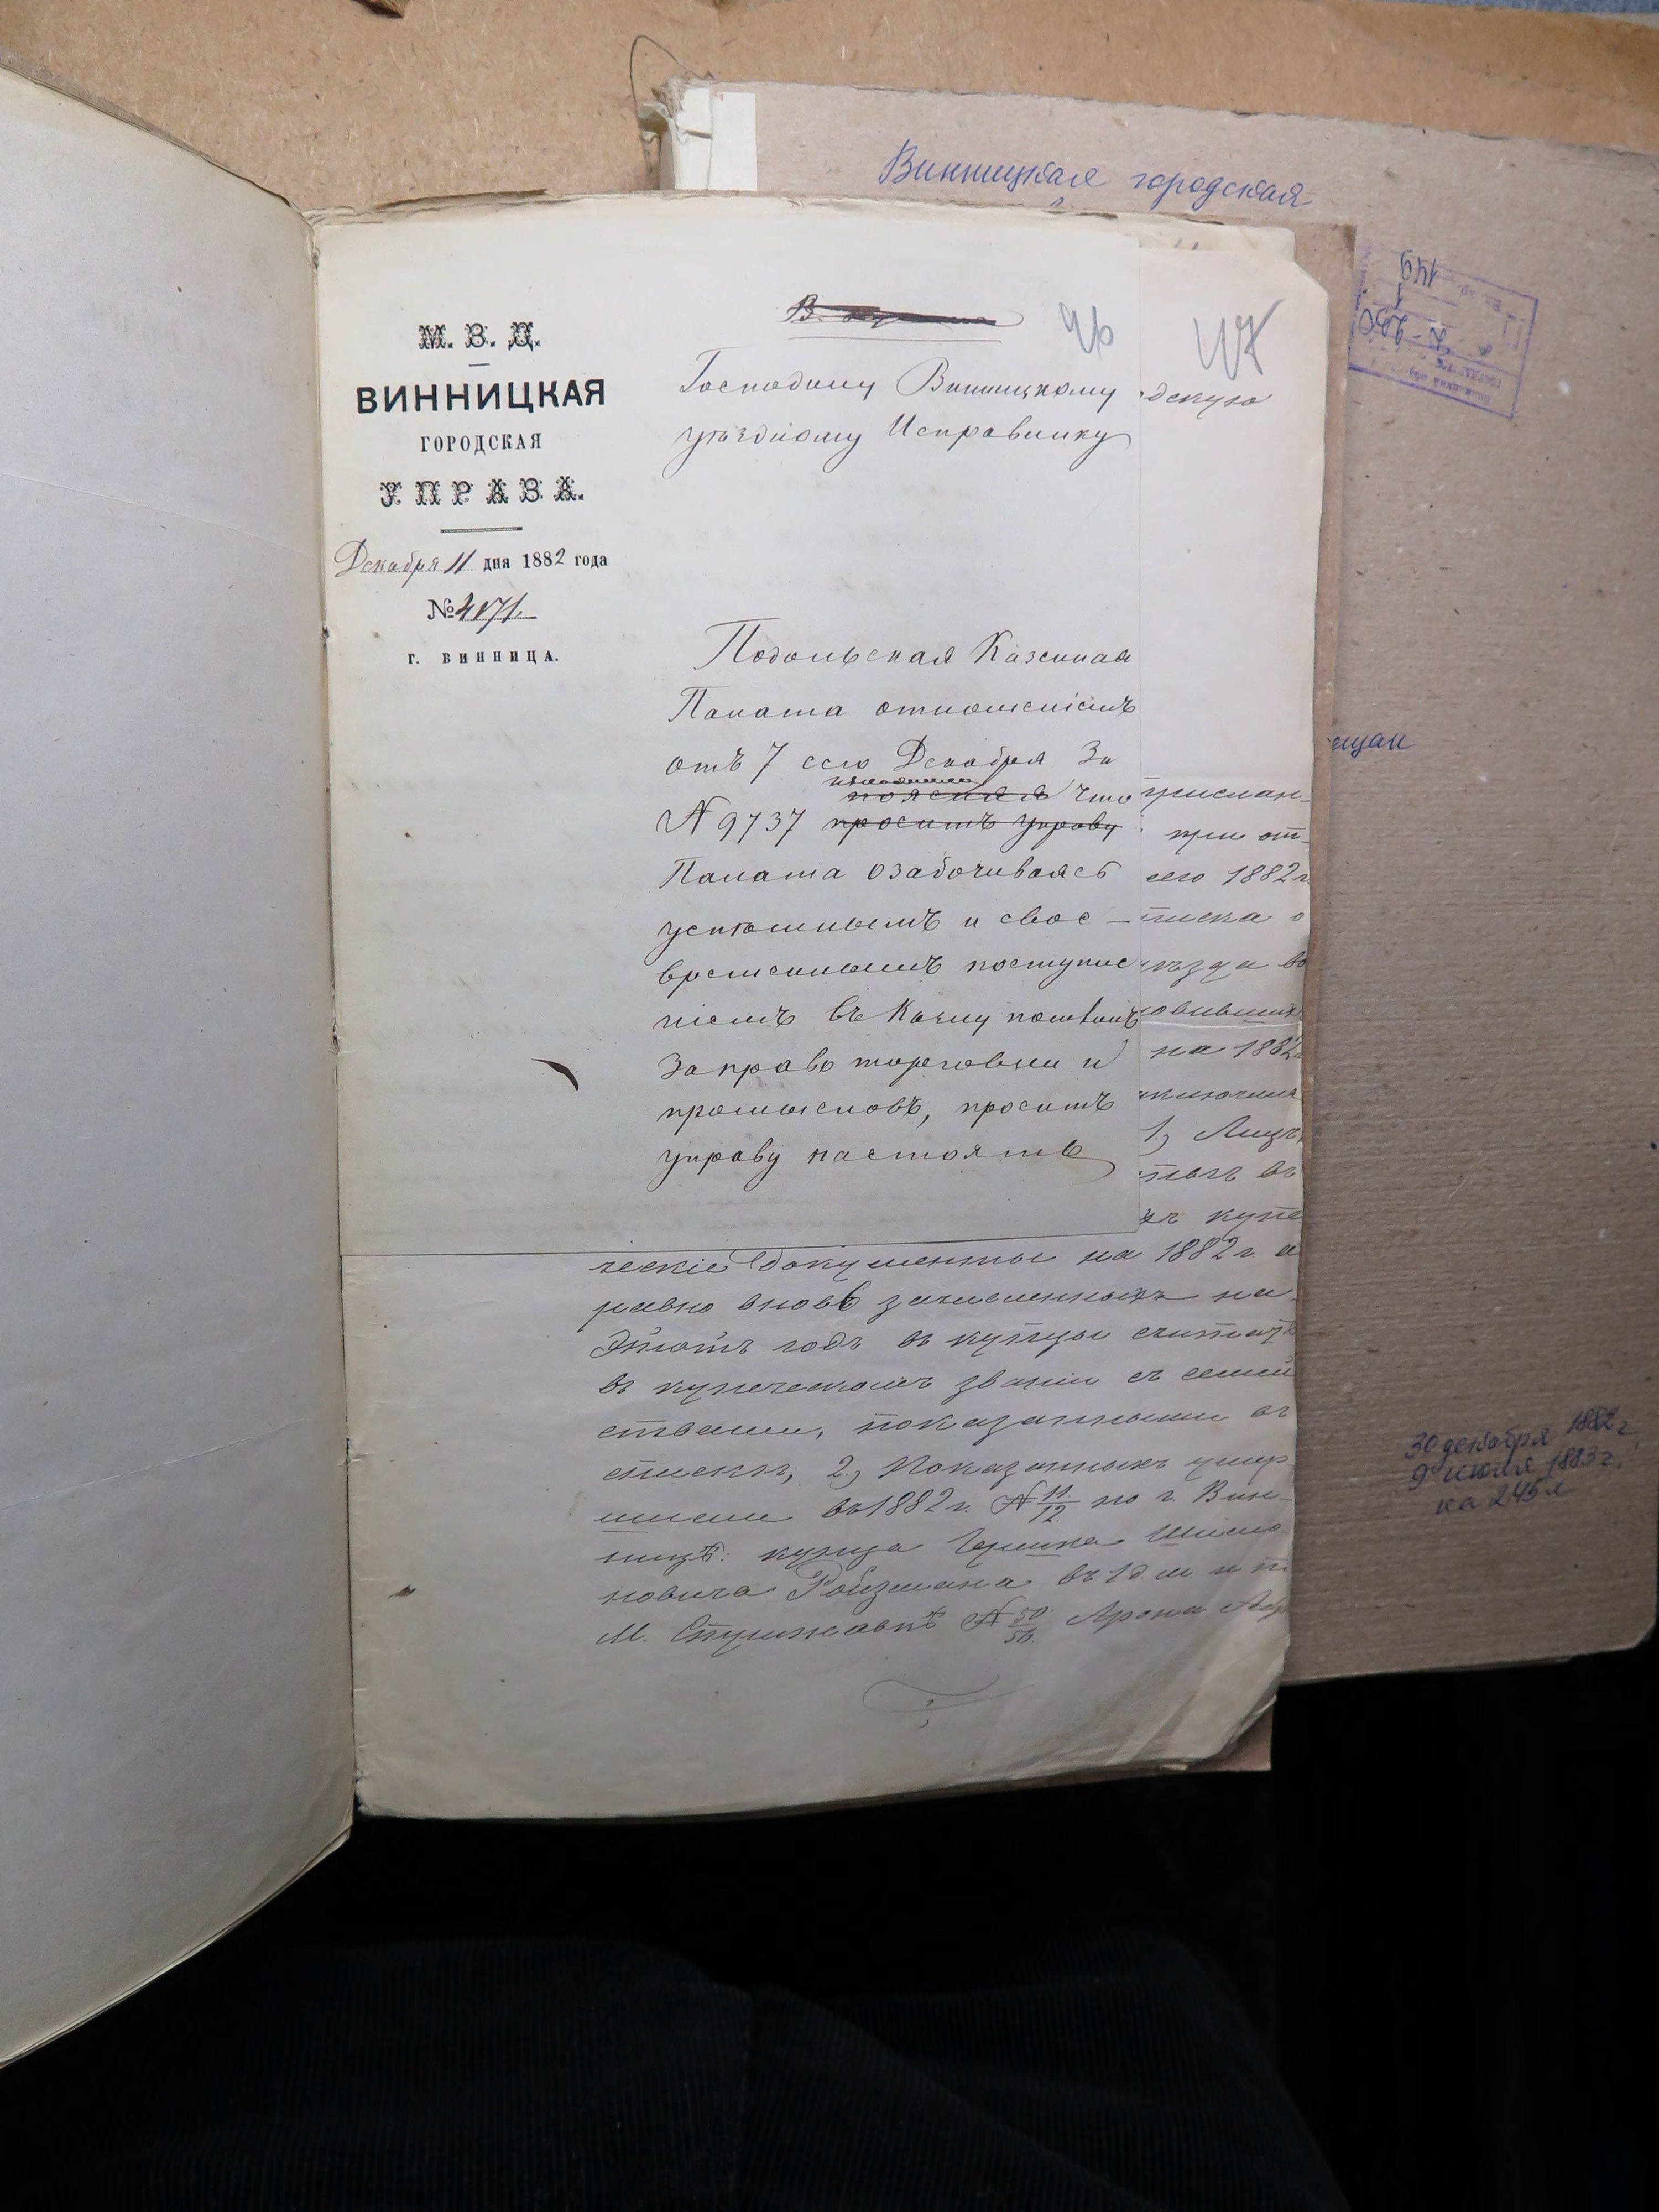 Винницкая городская
149
М. В. Д.
ВИННИЦКАЯ
ГОРОДСКАЯ
УПРАВА.
Декабря 11 дня 1882 года
№ 4171.
г. ВИННИЦА.
46
47
Господину Винницкому
уѣздному Исправнику
дскую
Подольская Казенная
Палата отношеніемъ
отъ 7 сего Декабря За
пояснила что
№ 9737 проситъ Управу
Палата озабочиваясь
успѣшнымъ и свое-
временнымъ поступле
ніемъ въ Казну пошлинъ
За право торговли и
промысловъ, проситъ
управу настоять
ещан
прислан-
при от-
сего 1882 г.
писка о
уѣзда во
новивших
на 1882 г.
заключила
1, Лицъ,
въ
купе
ческіе документы на 1882 г. а
равно вновь зачисленныхъ на
этотъ годъ въ купцы считать
въ купеческомъ званіи съ семей
ствами, показанными въ
спискѣ, 2, Показанныхъ умер
шими въ 1882 г. № 11/12 по г. Вин-
ницѣ: купца Гершка Шимо
новича Ройзмана въ 1 д. м. и п
М. Стрижавкѣ № 50/56. Арона
30 декабря 1882 г.
9 июля 1883 г.
на 245 л